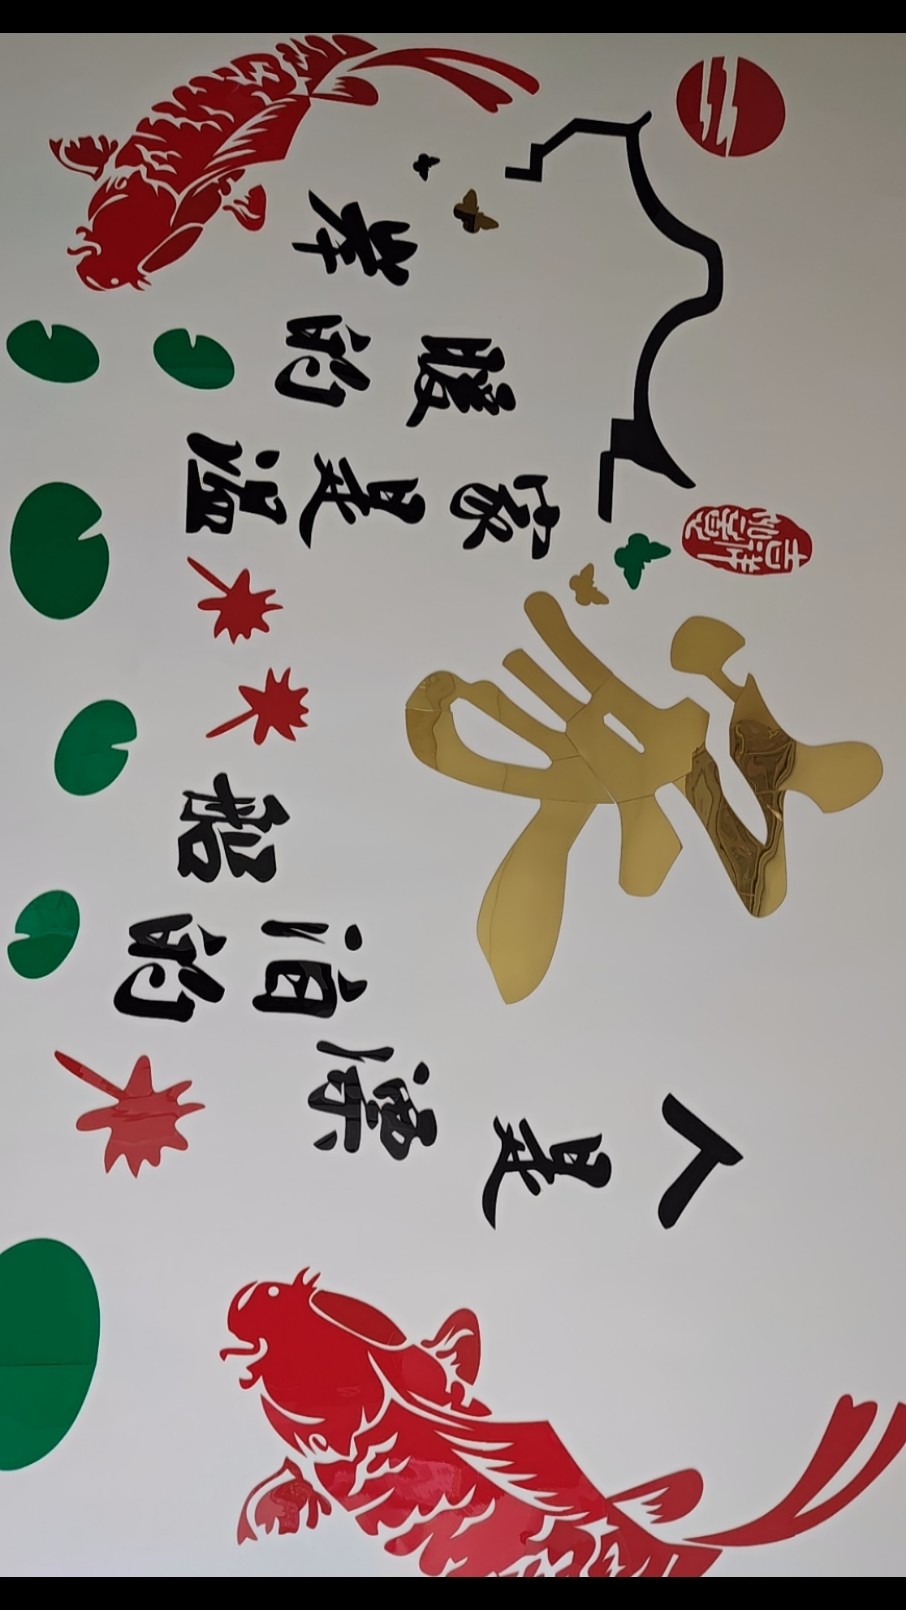 人是漂泊的船
家
吉祥如意
家是温暖的岸